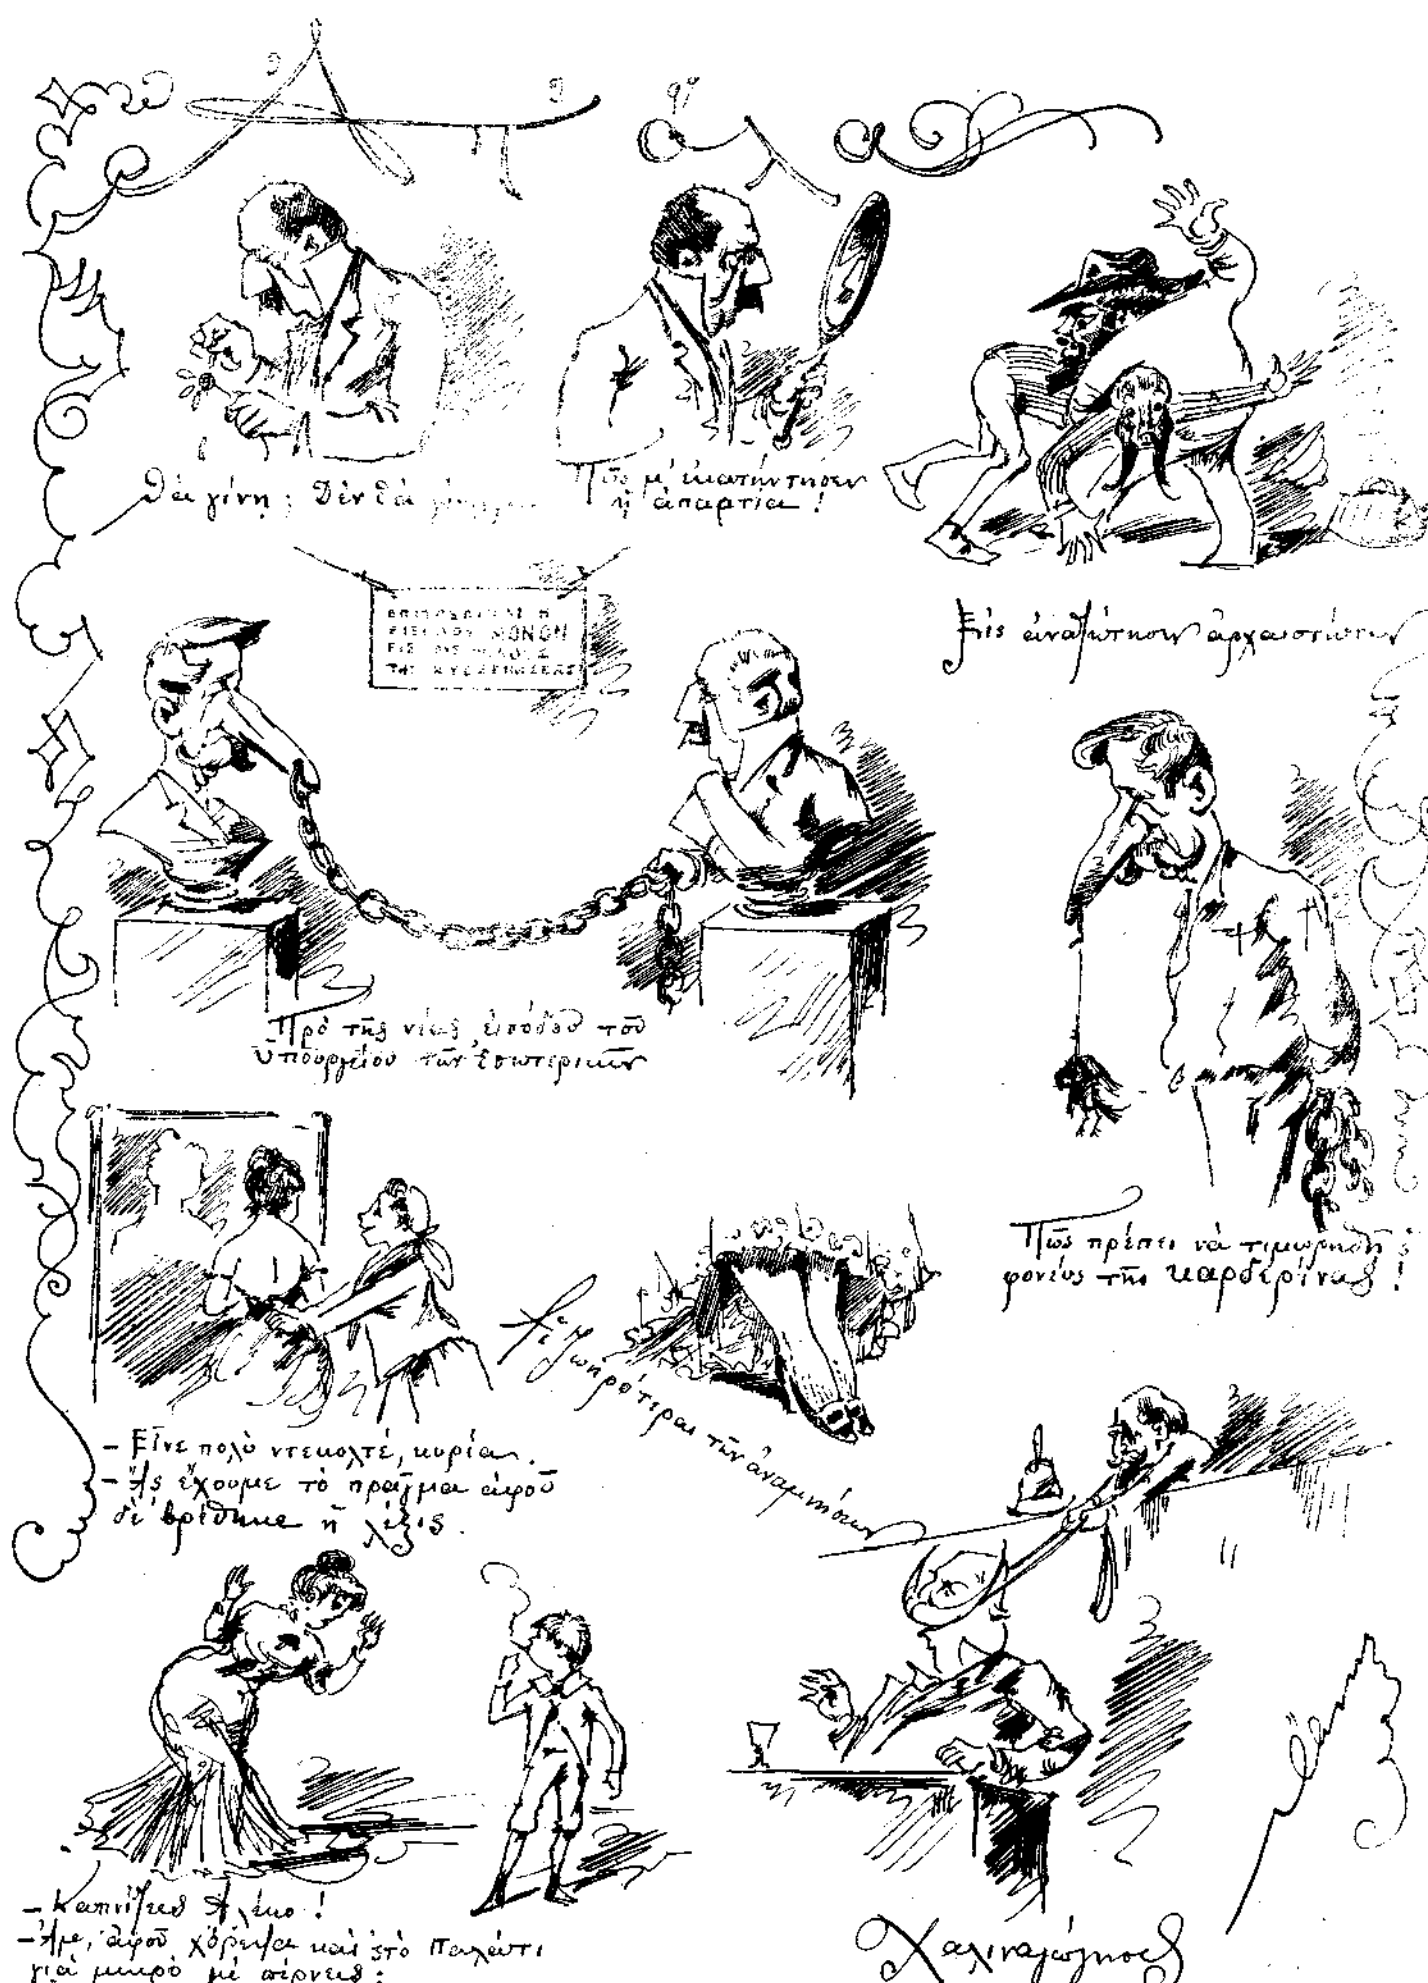 Θὰ γίνῃ; Δὲν θὰ
Πῶς μ' ἐκατήντησεν
ἡ ἀπαρτία!
Εἰς ἀναζήτησιν ἀρχαιοτήτων
ΕΙΣΟΔΟΣ ΜΟΝΟΝ
ΕΙΣ ΤΟΥΣ ΦΙΛΟΥΣ
ΤΗΣ ΚΥΒΕΡΝΗΣΕΩΣ
Πρὸ τῆς νέας εἰσόδου τοῦ
Ὑπουργείου τῶν Ἐσωτερικῶν
Πῶς πρέπει νὰ τιμωρηθῇ ὁ
φονεὺς τῆς καρδερίνας!
- Εἶνε πολὺ ντεκολτέ, κυρία.
- Ἂς ἔχουμε τὸ πρᾶγμα ἀφοῦ
δὲ βρίθηκε ἡ λέξις.
Αἱ ζωηρότεραι τῶν ἀναμνήσεων
- Καπνίζεις Ἀλέκο!
- Ἀμε, ἀφοῦ χόρεψα καὶ 'στὸ Παλάτι
γιὰ μικρὸ μὲ πέρνεις;
Χαλιναγώγησις